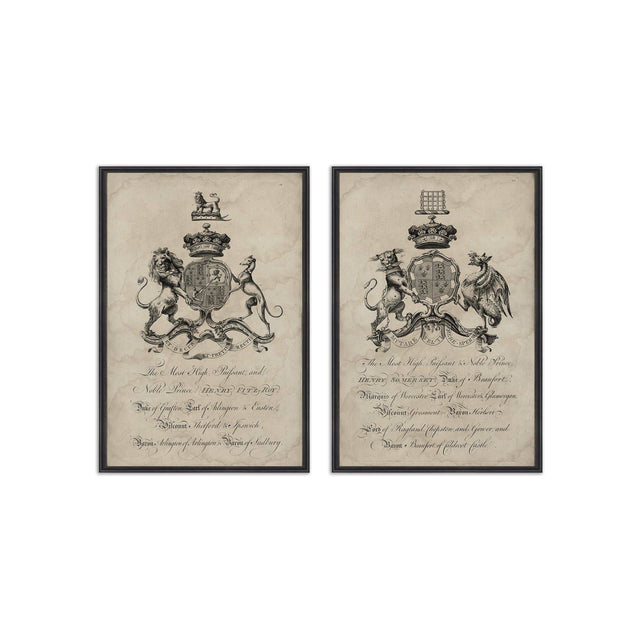 ET DECUS ET PRETIUM RECTI
The Most High Puissant, and
Noble Prince HENRY FITZ-ROY
Duke of Grafton, Earl of Arlington & Euston,
Viscount Thetford & Ipswich,
Baron Arlington of Arlington & Baron of Sudbury.
MUTARE VEL TIMERE SPERNO
The Most High Puissant & Noble Prince,
HENRY SOMERSET Duke of Beaufort,
Marquis of Worcester Earl of Worcester, Glamorgan,
Viscount Grosmont Baron Herbert
Lord of Ragland Chepston and Gower, and
Baron Beaufort of Caldecot Castle